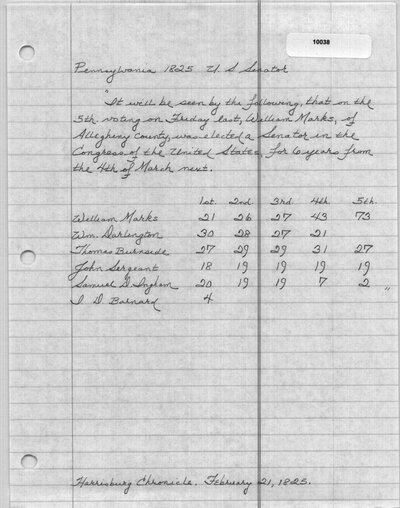 10038
Pennsylvania 1825 U S Senator
"It will be seen by the following, that on the
5th voting on Friday last, William Marks, of
Allegheny County, was elected a Senator in the
Congress of the United States, for 6 years from
the 4th of March next.
1st. 2nd. 3rd. 4th. 5th.
William Marks 21 26 27 43 73
Wm. Darlington 30 28 27 21
Thomas Burnside 27 29 29 31 27
John Sergeant 18 19 19 19 19
Samuel D. Ingham 20 19 19 7 2 "
I D Barnard 4
Harrisburg Chronicle. February 21, 1825.